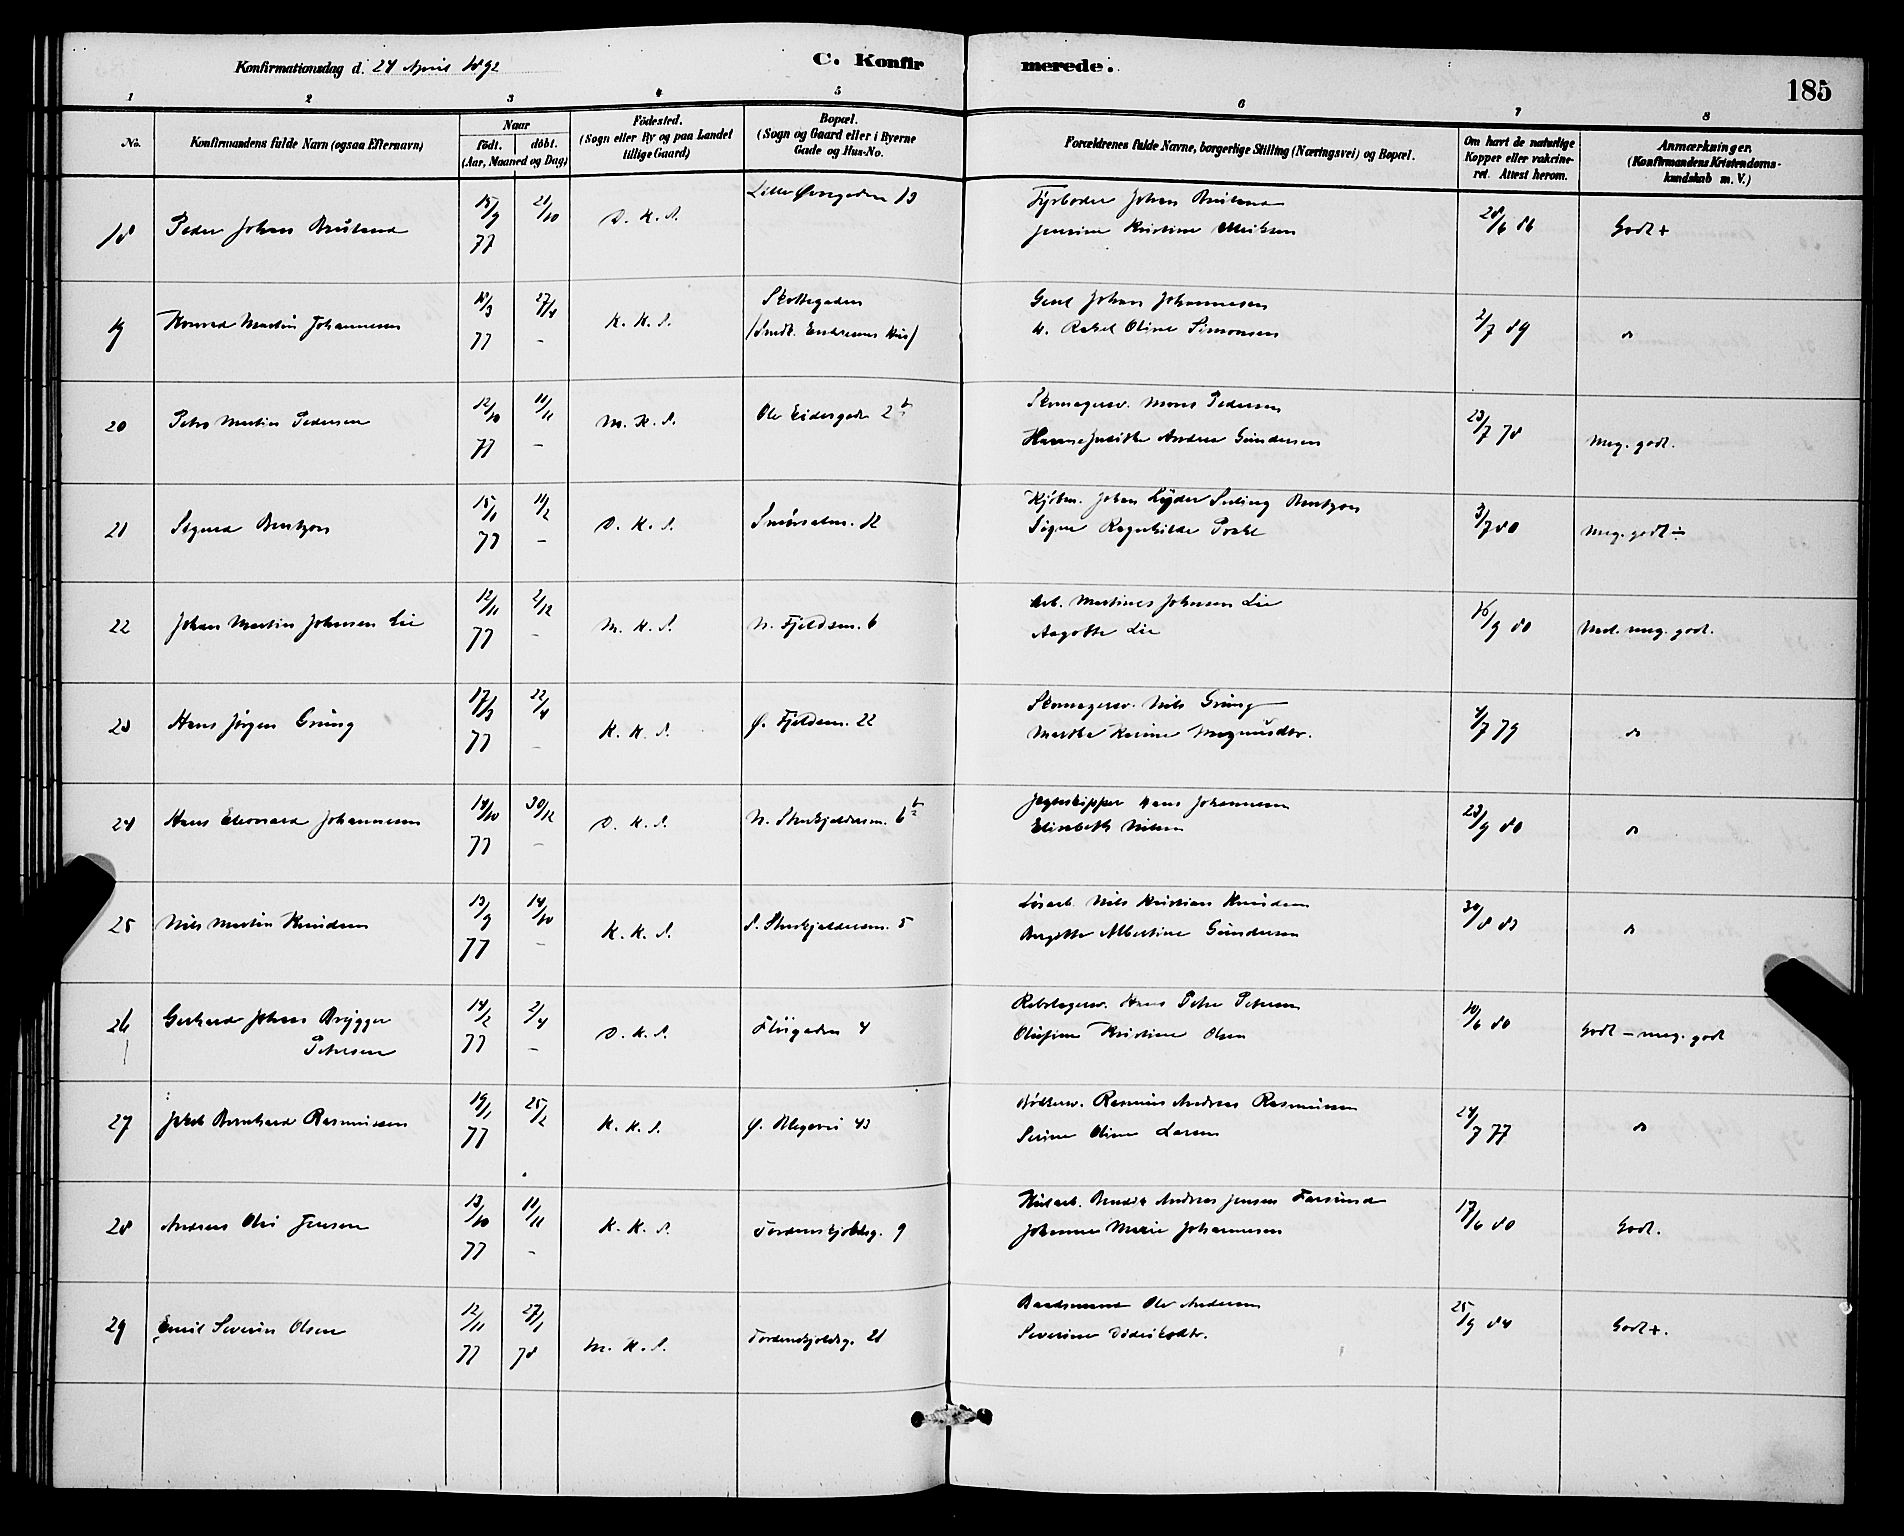 Konfirmationsdag d. 24 April 1892
C. Konfirmerede.
185
1 2 3 4 5 6 7 8
No.
Konfirmandens fulde Navn (ogsaa Efternavn)
Naar
födt. döbt.
(Aar, Maaned og Dag)
Födested.
(Sogn eller By og paa Landet
tillige Gaard)
Bopæl.
(Sogn og Gaard eller i Byerne
Gade og Hus-No.
Forældrenes fulde Navne, borgerlige Stilling (Næringsvei) og Bopæl.
Om havt de naturlige
Kopper eller vakcine-
ret. Attest herom.
Anmærkninger.
(Konfirmandens Kristendoms-
kundskab m. V.)
18 Peder Johan 15/9 77 21/10 D. K. S. Lille Øvregaden 13
Fyrbøder Johan
Jensine Kristine
28/6 86 Godt +
19 Konrad Martin Johannesen 18/3 77 27/4 - K. K. S. Skottegaden
Johan Johannesen
Rakel Oline Simonsen
2/7 89 do
20 Petro Martin Pedersen 12/10 77 11/11 - M. K. S. 2 b
Skomagersv. Mons Pedersen
Andrea Gundersen
23/7 78 Meg. godt.
21 Sigurd Bentzon 15/1 77 11/2 - D. K. S.
Kjøbm. Johan Bentzon
Signe Ragnhilde
3/7 80 Meg. godt ÷
22 Johan Martin Johnsen Lie 12/11 77 2/12 - M. K. S. N. Fjeldsm. 6
Arb. Martines Johnsen Lie
Aagotte Lie
16/9 80 Med. meg. godt.
23 Hans Jørgen Grung 17/3 77 22/4 - K. K. S. Ø. Fjeldsm. 22
Skomagersv. Nils Grung
Martha Karine Magnusdtr.
4/7 79 do
24 Hans Eleonard Johannesen 18/10 77 30/12 - D. K. S. N. Stenkjeldersm. 6 b
Jægteskipper Hans Johannesen
Elisabeth Nilsen
23/9 80 do
25 Nils Martin Knudsen 13/9 77 14/10 - K. K. S. S. Stenkjeldersm. 5
Løsarb. Nils Kristian Knudsen
Bergitte Albertine Gundersen
30/8 83 do
26 Gerhard Johan Brygger
Petersen 14/2 77 2/4 - D. K. S. 4
Rebslagersv. Hans Peter Petersen
Olufine Kristine Olsen
10/6 80 Godt - meg. godt
27 Jakob Bernhard Rasmussen 19/1 77 25/2 K. K. S. Ø. Blegevei 43
Bødkersv. Rasmus Andreas Rasmussen
Serine Oline Larsen
24/7 77 do
28 Andreas Olai Jensen 13/10 77 11/11 - K. K. S. Tordenskjoldsg. 9
Andreas Jensen Farsund
Johanne Marie Johannesen
17/6 80 Godt.
29 Emil Severin Olsen 12/11 77 27/1 78 M. K. S. Tordenskjoldsg. 21
Baadsmand Ole Andersen
Severine
25/9 84 Godt +.